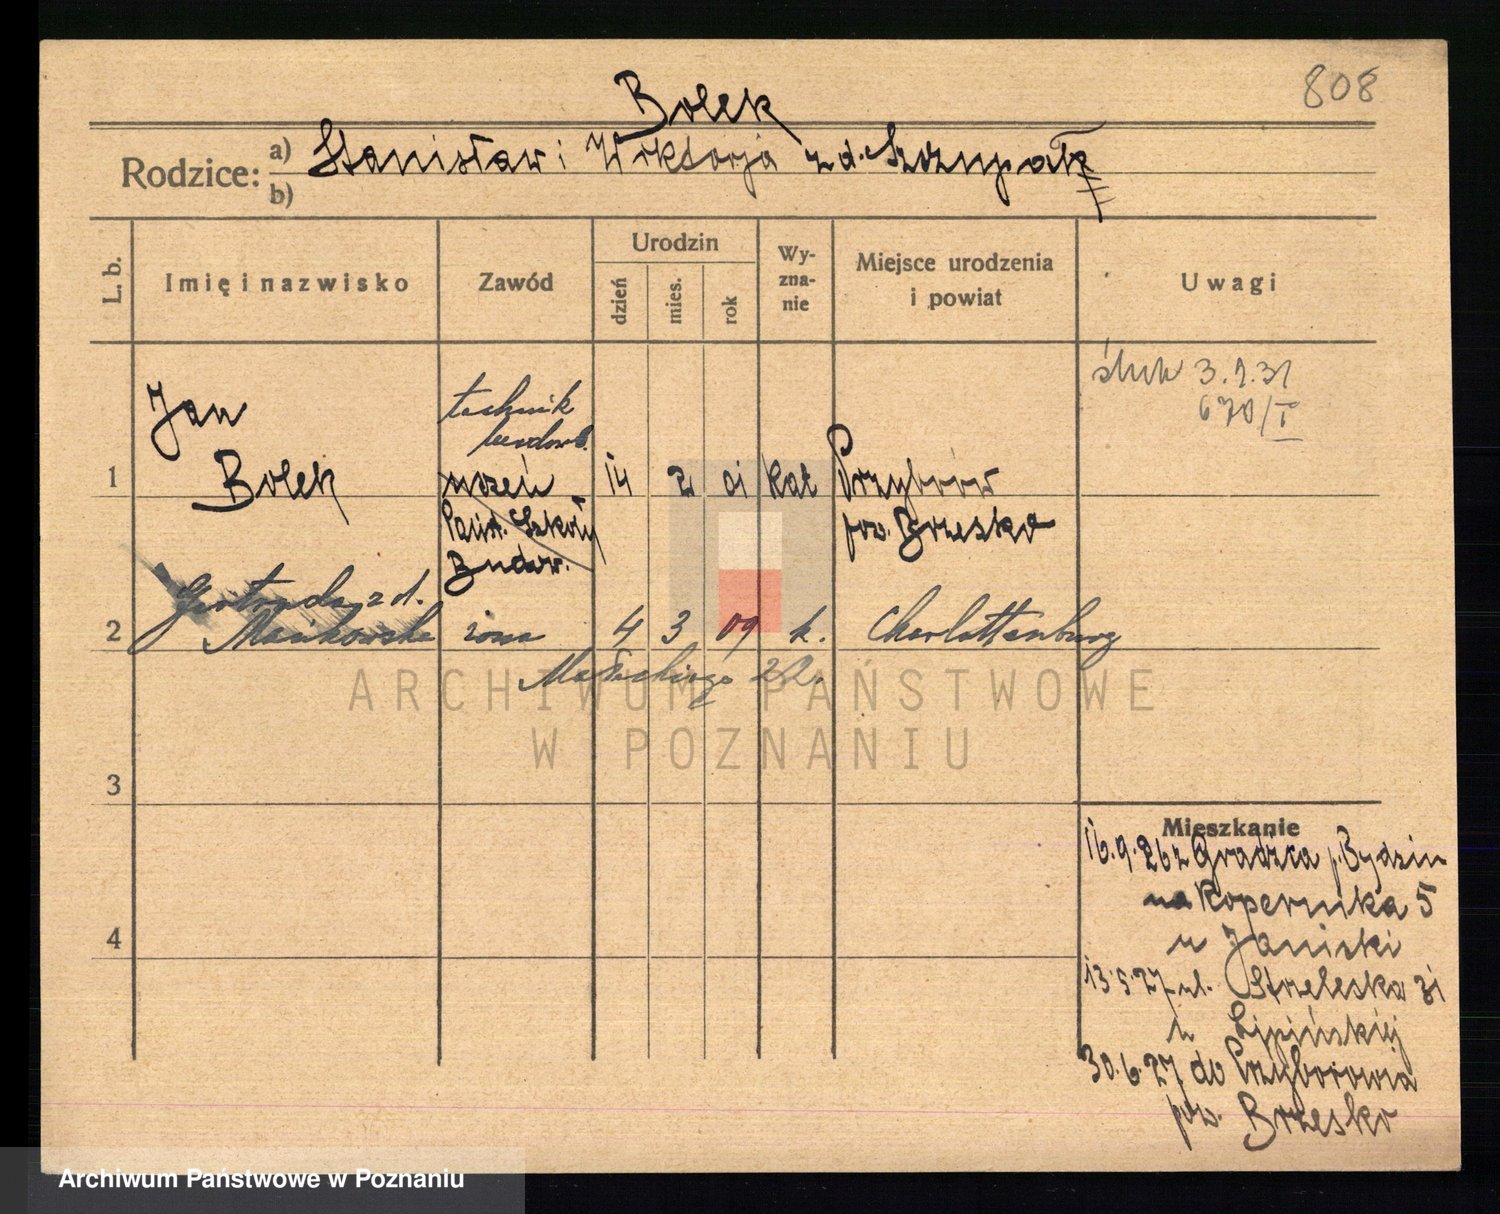 808
Bolek
Rodzice: a) Stanisław i Wiktorja z d. Szczupak
b)
L. b.
Imię i nazwisko
Zawód
Urodzin
dzień
mies.
rok
Wy-
zna-
nie
Miejsce urodzenia
i powiat
Uwagi
ślub 3.1.31
670/I
Jan
technik
budowl.
1 Bolek uczeń 14 2 01 kat Przyborów
Państ. Szkoły pow. Brzesko
Budow.
Gertruda z d.
2 Mańkowska żona 4 3 09 k. Charlottenburg
Małeckiego 22.
3
4
Mieszkanie
16.9.26 z Gradźca p. Będzin
na Kopernika 5
u Janiski
13.5.27 ul. Strzelecka 31
u Lipińskiej
30.6.27 do Przyborowia
pow. Brzesko
ARCHIWUM PAŃSTWOWE
W POZNANIU
Archiwum Państwowe w Poznaniu